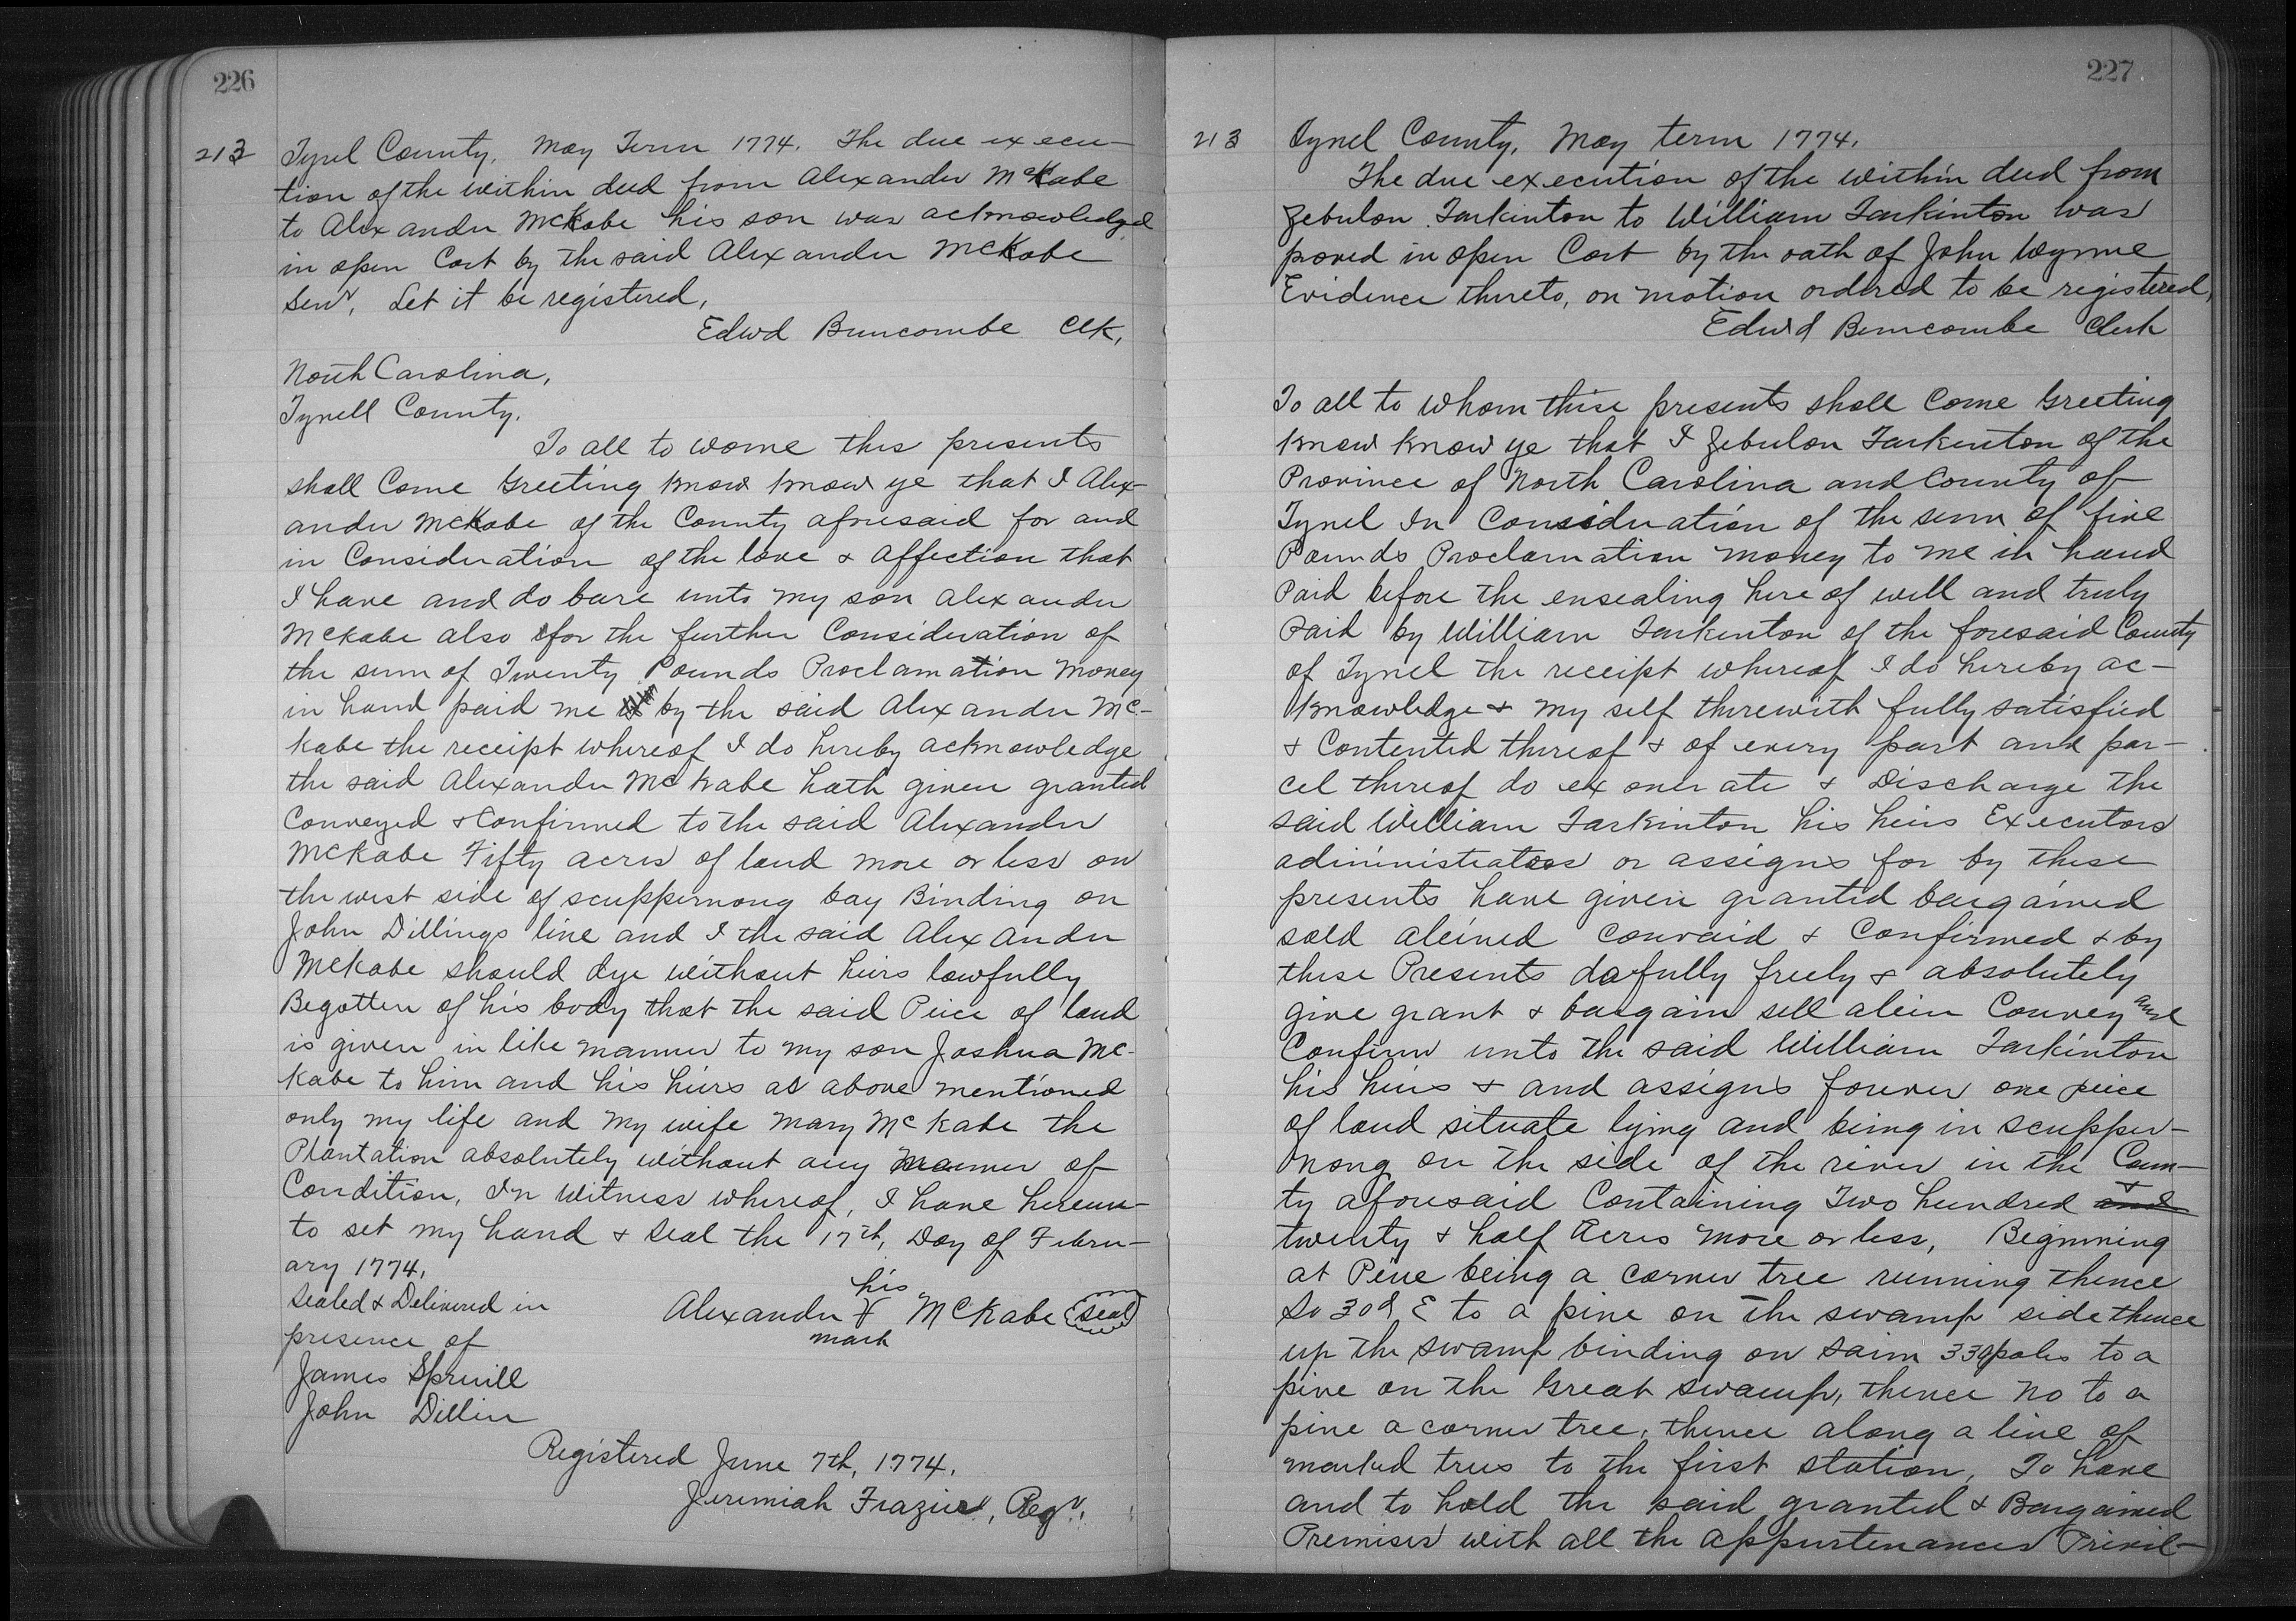 226
213
Tyrel County, May Term 1774. The due execu-
tion of the within deed from Alexander McKabe
to Alexander McKabe his son was acknowledged
in open Cort by the said Alexander McKabe
Senr, Let it be registered,
Edwd Buncombe Clk,
North Carolina,
Tyrell County.
To all to wome this presents
shall Come Greeting know know ye that I Alex-
ander McKabe of the County aforesaid for and
in Consideration of the love & affection that
I have and do bare unto my son Alexander
McKabe also for the further Consideration of
the sum of Twenty Pounds Proclamation money
in hand paid me by the said Alexander Mc-
Kabe the receipt whereof I do hereby acknowledge
the said Alexander McKabe hath given granted
Conveyed & Confirmed to the said Alexander
McKabe Fifty acres of land more or less on
the west side of scuppernong bay Binding on
John Dillings line and I the said Alexander
McKabe should dye without heirs lawfully
Begotten of his body that the said Peice of land
is given in like manner to my son Joshua Mc-
Kabe to him and his heirs as above mentioned
only my life and my wife Mary McKabe the
Plantation absolutely without any manner of
Condition, In Witness whereof, I have hereun-
to set my hand & seal the 17th, Day of Febru-
ary 1774,
Sealed & Delivered in
presence of
James Spruill
John Dillin
his
Alexander + McKabe (seal)
mark
Registered June 7th, 1774.
Jeremiah Frazier, Regr.
227
213
Tyrel County, May term 1774.
The due execution of the within deed from
Zebulon Tarkinton to William Tarkinton was
proved in open Cort by the oath of John Wynne
Evidence thereto, on motion ordered to be registered,
Edwd Buncombe Clerk
To all to whom these presents shall Come Greeting
know know ye that I Zebulon Tarkenton of the
Province of North Carolina and County of
Tyrel In Consideration of the sum of five
Pounds Proclamation money to me in hand
Paid before the ensealing here of well and truly
paid by William Tarkenton of the foresaid County
of Tyrel the receipt whereof I do hereby ac-
knowledge & my self therewith fully satisfied
& Contented thereof & of every part and par-
cel thereof do exonerate & Discharge the
said William Tarkinton his heirs Executors
administrators or assigns for by these
presents have given granted bargained
sold aleined convaid & Confirmed & by
these Presents do fully freely & absolutely
give grant & bargain sell alein Convey and
Confirm unto the said William Tarkinton
his heirs & and assigns forever one peice
of land situate lying and being in scupper-
nong on the side of the river in the Coun-
ty aforesaid Containing Two hundred and &
twenty & half Acres more or less, Beginning
at Pine being a corner tree running thence
So 30d E to a pine on the swamp side thence
up the swamp binding on saim 330 poles to a
pine on the Great swamp, thence No to a
pine a corner tree, thence along a line of
marked trees to the first station, To have
and to hold the said granted & Bargained
Premises with all the appurtenances Privil-